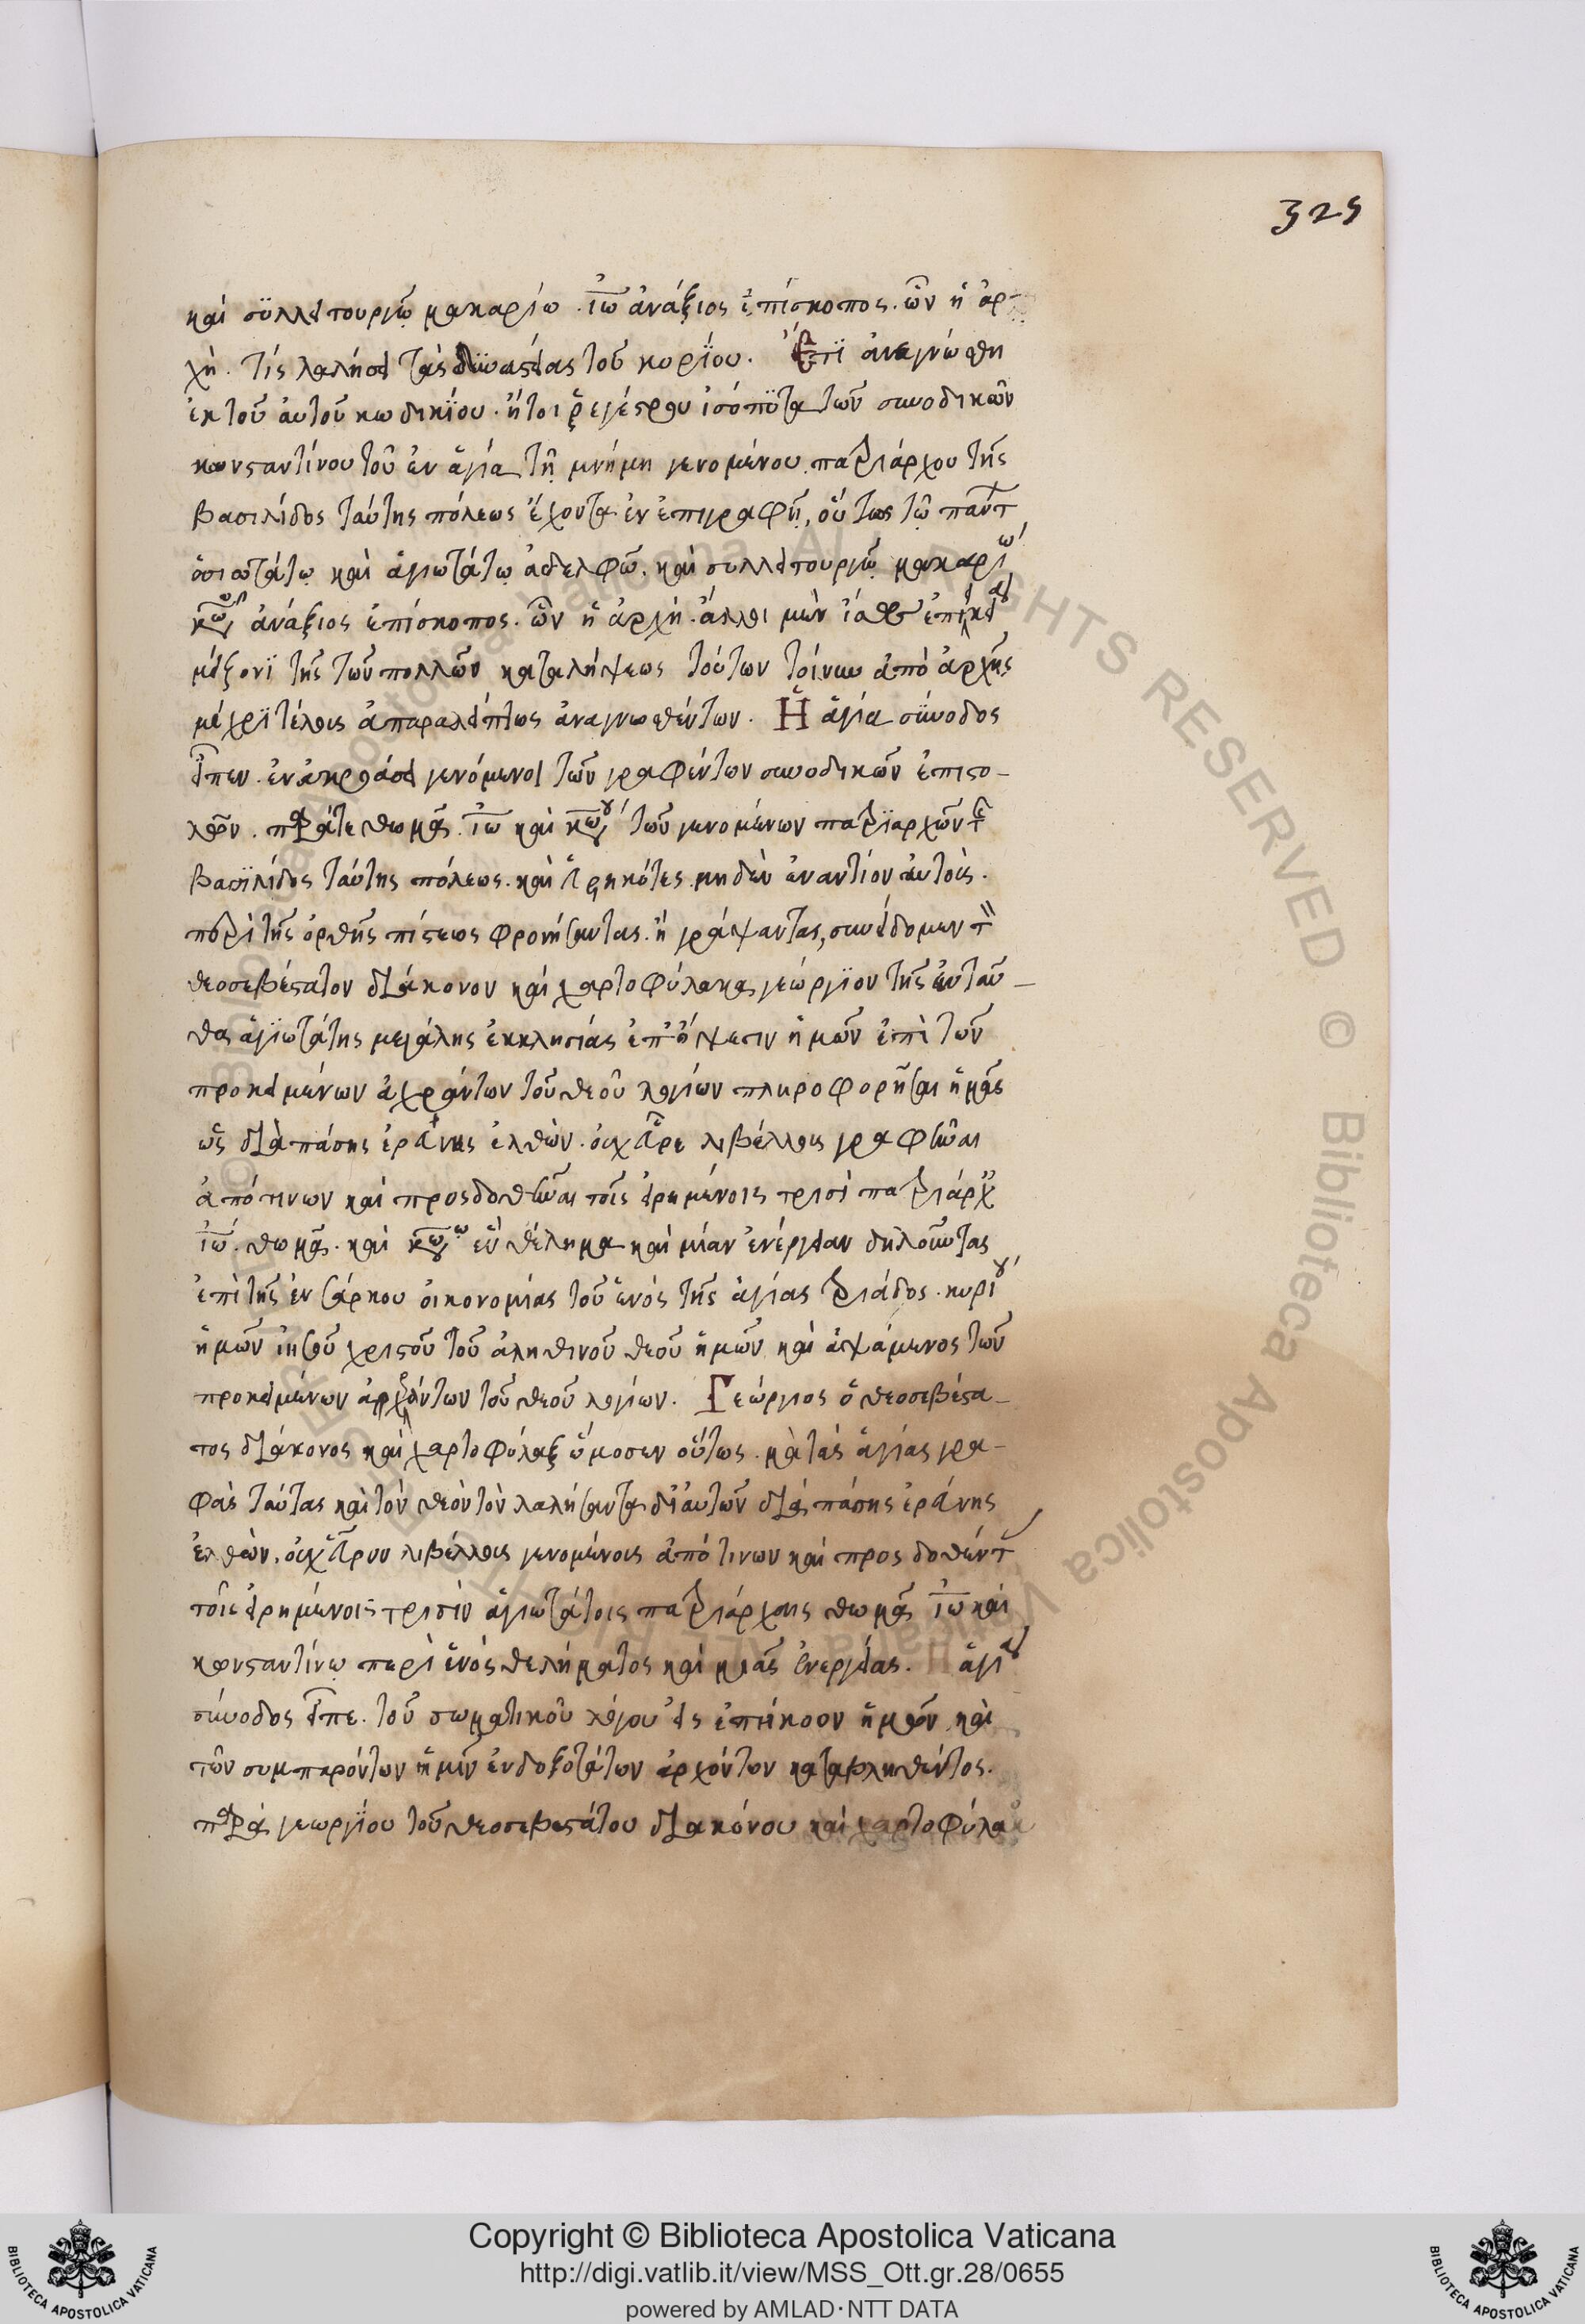 325
καὶ σϋλλειτουργῷ μακαρίω. ἰω ἀνάξιος ἐπίσκοπος. ὧν ἡ ἀρ-
χὴ. τίς λαλήσει τὰς δϋναστείας τοῦ κυρίου. Ἔτι ἀνεγνώσθη
ἐκ τοῦ αὐτοῦ κωδικίου. ἤτοι ῥεγέστρου ἰσότϋπα τῶν συνοδικῶν
κωνσταντίνου τοῦ ἐν ἁγία τῇ μνήμη γενομένου πατριάρχου τῆς
βασιλίδος ταύτης πόλεως ἔχοντα ἐν ἐπιγραφῇ, οὕτως τῷ παντ
ὁσιωτάτῳ καὶ ἁγιωτάτῳ ἀδελφῶ. καὶ συλλειτουργῷ μακαρίω
κων ἀνάξιος ἐπίσκοπος. ὧν ἡ ἀρχή. ἄλλοι μὲν
μείζονι τῆς τῶν πολλῶν καταλήψεως τούτων τοίνυν ἀπὸ ἀρχῆς
μέχρϊ τέλους ἀπαραλείπτως ἀναγνωσθέντων. Ἡ ἁγία σύνοδος
εἶπεν. ἐν ἀκροάσει γενόμενοι τῶν γραφέντων συνοδικῶν ἐπιστο-
λῶν. παρά τε θωμᾶ. ἰω καὶ κων τῶν γενομένων πατριαρχῶν τ
βασϊλίδος ταύτης πόλεως. καὶ εὑρηκότες μηδὲν ἐναντίον αὐτοὺς.
περὶ τῆς ὀρθῆς πίστεως φρονήσαντας. ἢ γράψαντας, συνείδομεν τ
θεοσεβέστατον διάκονον καὶ χαρτοφύλακα γεώργϊον τῆς ἐνταῦ-
θα ἁγϊωτάτης μεγάλης ἐκκλησίας ἐπ' ὄψεσιν ἡμῶν ἐπὶ τῶν
προκειμένων ἀχράντων τοῦ θεοῦ λογίων πληροφορῆσαι ἡμᾶς
ὡς διὰ πάσης ἐρεύνης ἐλθὼν. οὐχ εὗρε λιβέλλους γραφῆναι
ἀπό τινων καὶ προσδοθῆναι τοῖς εἰρημένοις τρισὶ πατριάρχ
ἰω. θωμᾶ. καὶ κων ἓν θέλημα καὶ μίαν ἐνέργειαν δηλοῦντας
ἐπὶ τῆς ἐνσάρκου οἰκονομίας τοῦ ἑνὸς τῆς ἁγίας τριάδος. κυρίου
ἡμῶν ἰησοῦ χριστοῦ τοῦ ἀληθινοῦ θεοῦ ἡμῶν καὶ ἁψάμενος τῶν
προκειμένων ἀχράντων τοῦ θεοῦ λογίων. Γεώργιος ὁ θεοσεβέστα-
τος διάκονος καὶ χαρτοφύλαξ ὤμοσεν οὕτως. μὰ τὰς ἁγίας γρα-
φὰς ταύτας καὶ τὸν θεὸν τὸν λαλήσαντα δι' αὐτῶν διὰ πάσης ἐρεύνης
ἐλθὼν. οὐχ εὗρον λιβέλλους γενομένους ἀπό τινων καὶ προσδοθέντ
τοῖς εἰρημένοις τρισὶν ἁγιωτάτοις πατριάρχαις θωμᾶ ἰω καὶ
κωνσταντίνῳ περὶ ἑνὸς θελήματος καὶ μιᾶς ἐνεργείας. Ἡ ἁγία
σύνοδος εἶπε. τοῦ σωματικοῦ λόγου εἰς ἐπήκοον ἡμῶν καὶ
τῶν συμπαρόντων ἡμῖν ἐνδοξοτάτων ἀρχόντων καταβληθέντος.
παρὰ γεωργίου τοῦ θεοσεβεστάτου διακόνου καὶ χαρτοφύλα
Copyright © Biblioteca Apostolica Vaticana
http://digi.vatlib.it/view/MSS_Ott.gr.28/0655
powered by AMLAD·NTT DATA